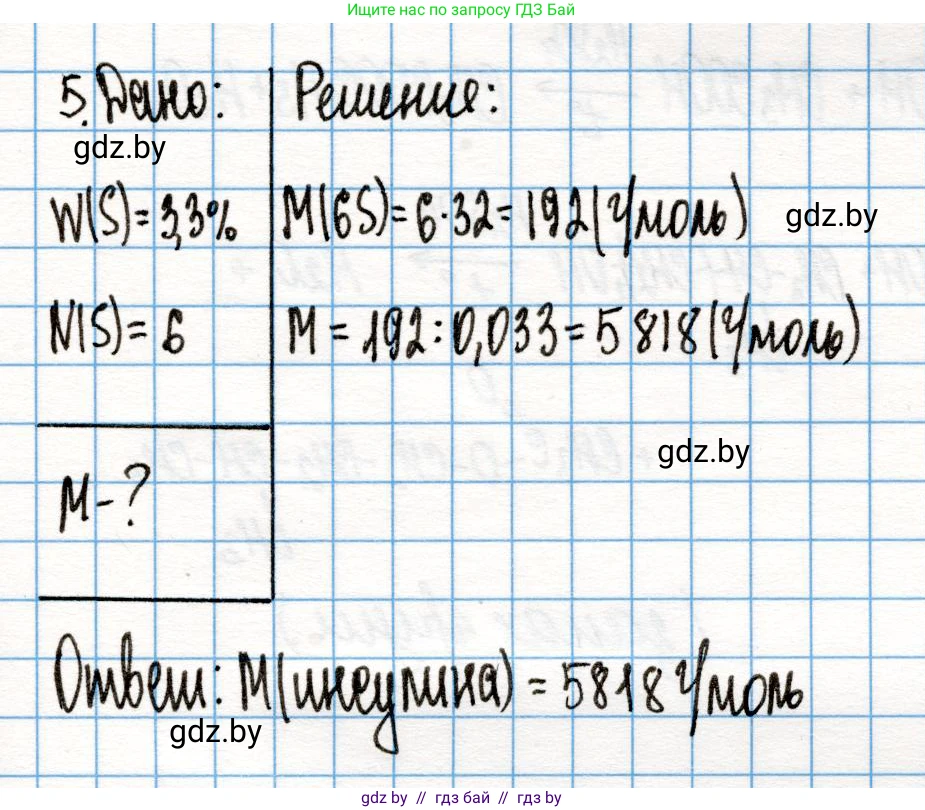 Ищите нас по запросу ГДЗ Бай
5. Дано:
Решение:
gdz.by
W(S)=3,3%
M(6S)=6·32=192(г/моль)
gdz.by
N(S)=6
M=192:0,033=5818(г/моль)
gdz.by
M-?
Ответ: M(инсулина)=5818 г/моль
gdz.by
gdz.by // гдз бай // gdz by